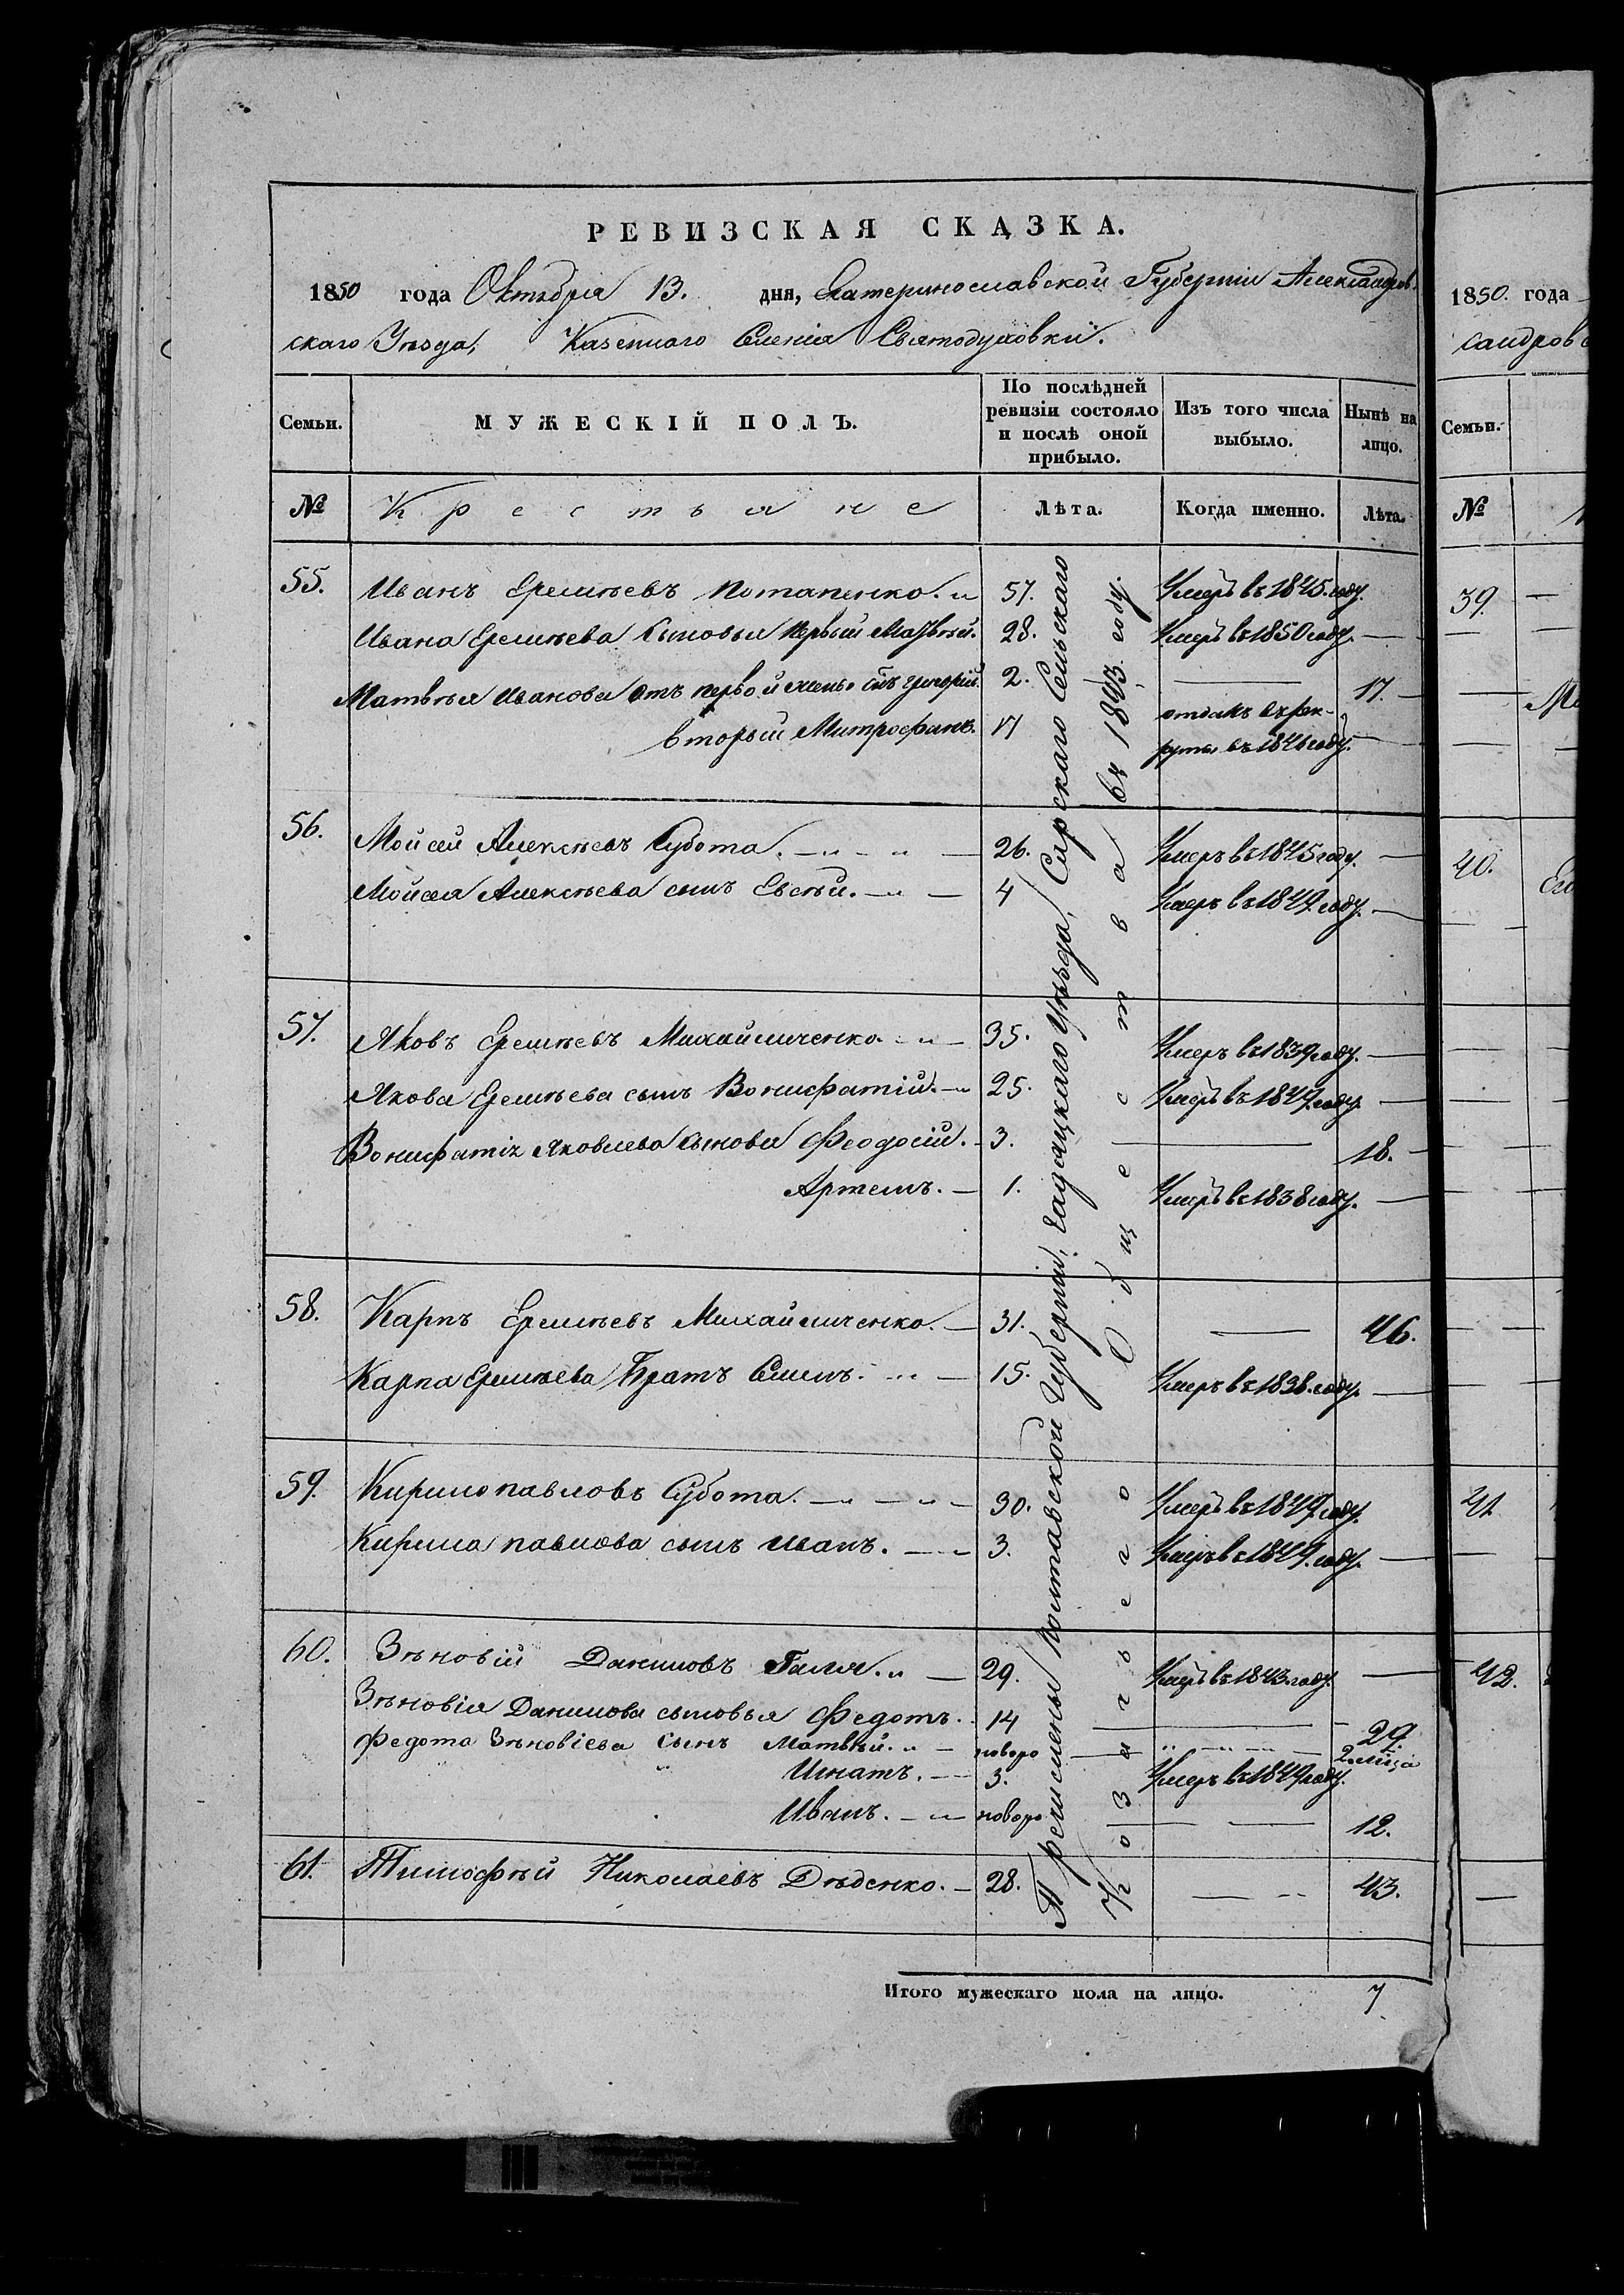 РЕВИЗСКАЯ СКАЗКА.
1850 года Октября 13. дня, Екатеринославской Губерніи Александров-
скаго Уѣзда, Казеннаго Селенія Святодуховки.
Семьи. МУЖЕСКІЙ ПОЛЪ. По послѣдней ревизіи состояло и послѣ оной прибыло. Изъ того числа выбыло. Нынѣ на лицо.
№ Крестьяне Лѣта. Когда именно. Лѣта.
55. Иванъ Еремѣевъ Потапенко. 57. Умеръ въ 1845. году.
Ивана Еремѣева сыновья первый Матвѣй. 28. Умеръ въ 1850 году. —
Матвѣя Иванова отъ первой жены сынъ Григорій. 2. — 17. —
вторый Митрофанъ. 17 отданъ въ рек-
руты въ 1846 году. —
56. Мойсей Алексѣевъ Субота. — 26. Умеръ въ 1845 году. —
Мойсея Алексѣева сынъ Евсѣй. — 4 Умеръ въ 1849. году. —
57. Яковъ Еремѣевъ Михайличенко. — 35. Умеръ въ 1839 году. —
Якова Еремѣева сынъ Вонифатій. — 25. Умеръ въ 1849. году. —
Вонифатія Яковлева сыновья Феодосій. — 3. — 18. —
Артемъ. — 1. Умеръ въ 1838 году. —
58. Карпъ Еремѣевъ Михайличенко. — 31. — 46.
Карпа Еремѣева Братъ Семенъ. — 15. Умеръ въ 1838. году. —
59. Кирило Павловъ Субота. — 30. Умеръ въ 1849. году.
Кирила Павлова сынъ Иванъ. — 3. Умеръ въ 1849. году. —
60. Зѣновій Даниловъ Галич. — 29. Умеръ въ 1843 году. —
Зѣновія Данилова сыновья Федотъ. 14 — 29.
Федота Зѣновіева сынъ Матвѣй. — новоро — 2. мѣсяца
Игнатъ. — 3. Умеръ въ 1849 году.
Иванъ. — новоро — 12.
61. Тимофѣй Николаевъ Дѣденко. — 28. — 43.
Пречислены Полтавской Губерніи, Гадяцкаго Уѣзда, Сарскаго Сельскаго
Обшества въ 1843. году.
Итого мужескаго пола на лицо. 7
1850. года
сандров
Семьи.
№
39.
40.
41.
42.